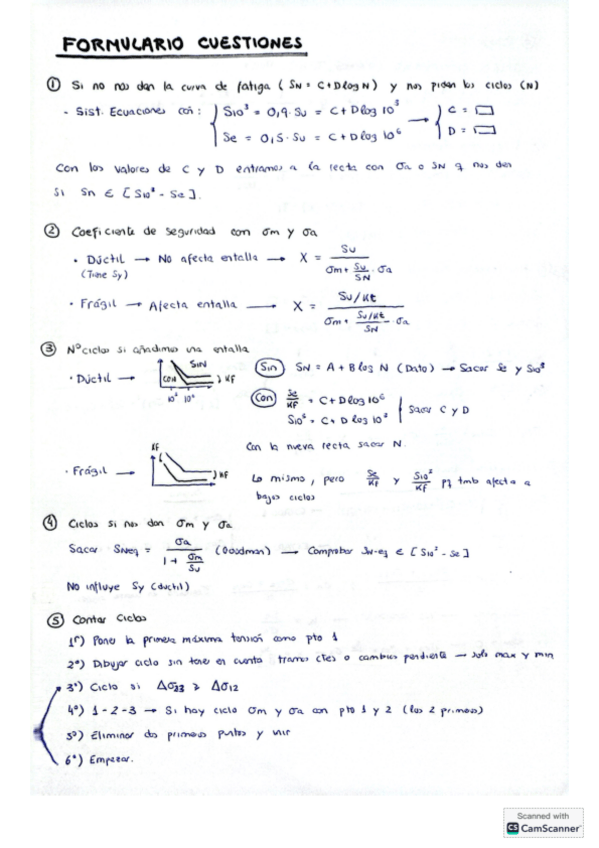 FORMULARIO CUESTIONES
① Si no nos dan la curva de fatiga (SN = C+DlogN) y nos piden los ciclos (N)
• Sist. Ecuaciones con: { S10³ = 0,9 · Su = C + Dlog 10³ → { C = □
Se = 0,5 · Su = C + Dlog 10⁶ D = □
Con los valores de C y D entramos a la recta con σa o SN q nos den
Si Sn ∈ [S10³ - Se].
② Coeficiente de seguridad con σm y σa
• Dúctil → No afecta entalla → X = Su / (σm + Su/SN · σa)
(Tiene Sy)
• Frágil → Afecta entalla → X = (Su/Kt) / (σm + (Su/Kt)/SN · σa)
③ Nº ciclos si añadimos una entalla
• Dúctil → SIN CON } KF 10³ 10⁶
(Sin) SN = A + B log N (Dato) → Sacar Se y S10³
(Con) Se/Kf = C + Dlog 10⁶
S10³ = C + D log 10³ } Sacar C y D
Con la nueva recta sacar N.
• Frágil → KF } KF
Lo mismo, pero Se/Kf y S10³/Kf pq tmb afecta a
bajos ciclos
④ Ciclos si nos dan σm y σa
Sacar SNeq = σa / (1 + σm/Su) (Goodman) → Comprobar SN-eq ∈ [S10³ - Se]
No influye Sy (ductil)
⑤ Contar Ciclos
1º) Poner la primera máxima tensión como pto 1
2º) Dibujar ciclo sin tener en cuenta tramos ctes o cambios pendiente → solo max y min
3º) Ciclo si Δσ23 ≥ Δσ12
4º) 1-2-3 → Si hay ciclo σm y σa con pto 1 y 2 (los 2 primeros)
5º) Eliminar dos primeros puntos y unir
6º) Empezar.
Scanned with
CS CamScanner